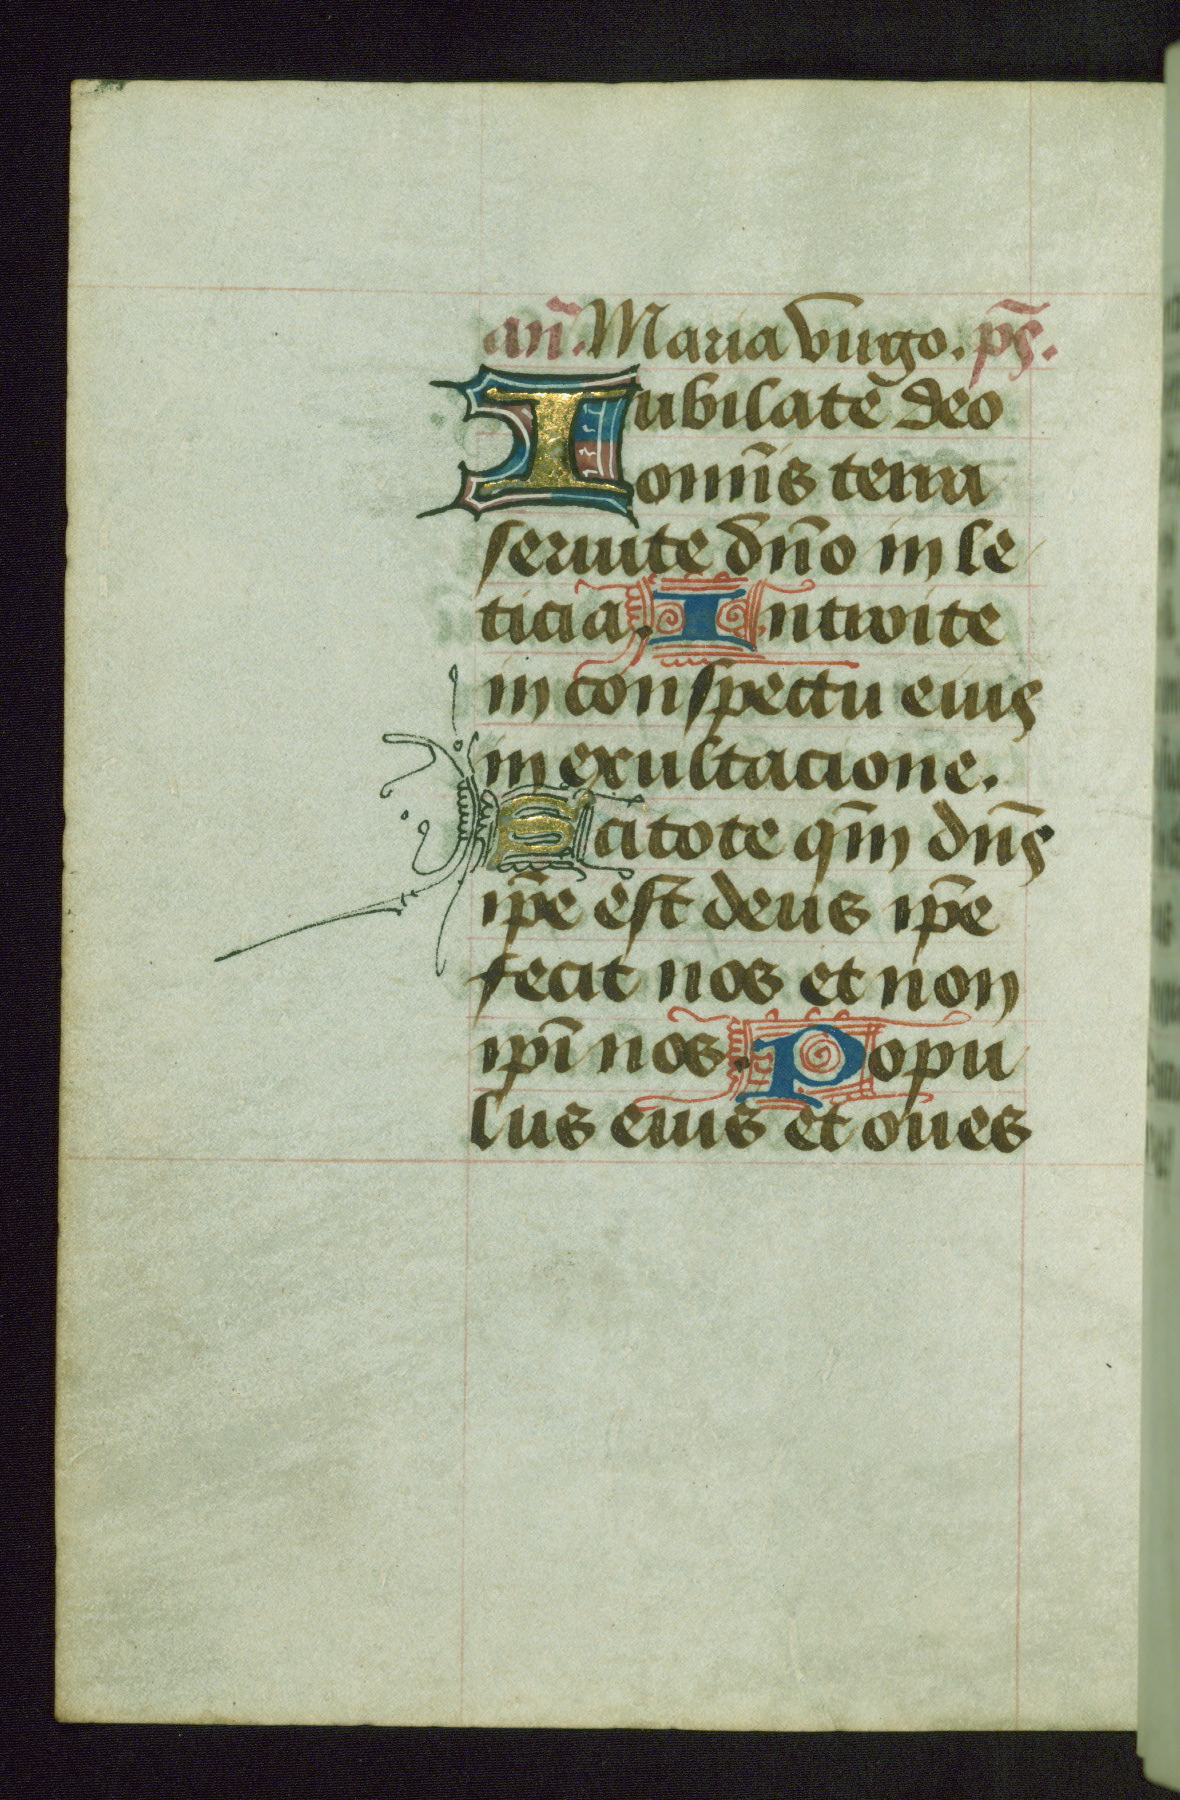 an̄. Maria v̄irgo. ps̄.
Iubilate deo
omn̄s terra
seruite dn̄o in le
ticia. Introite
in conspectu eius
in exultacione.
Scitote qm̄ dn̄s
ip̄e est deus ip̄e
fecit nos et non
ip̄i nos. Popu
lus eius et oues